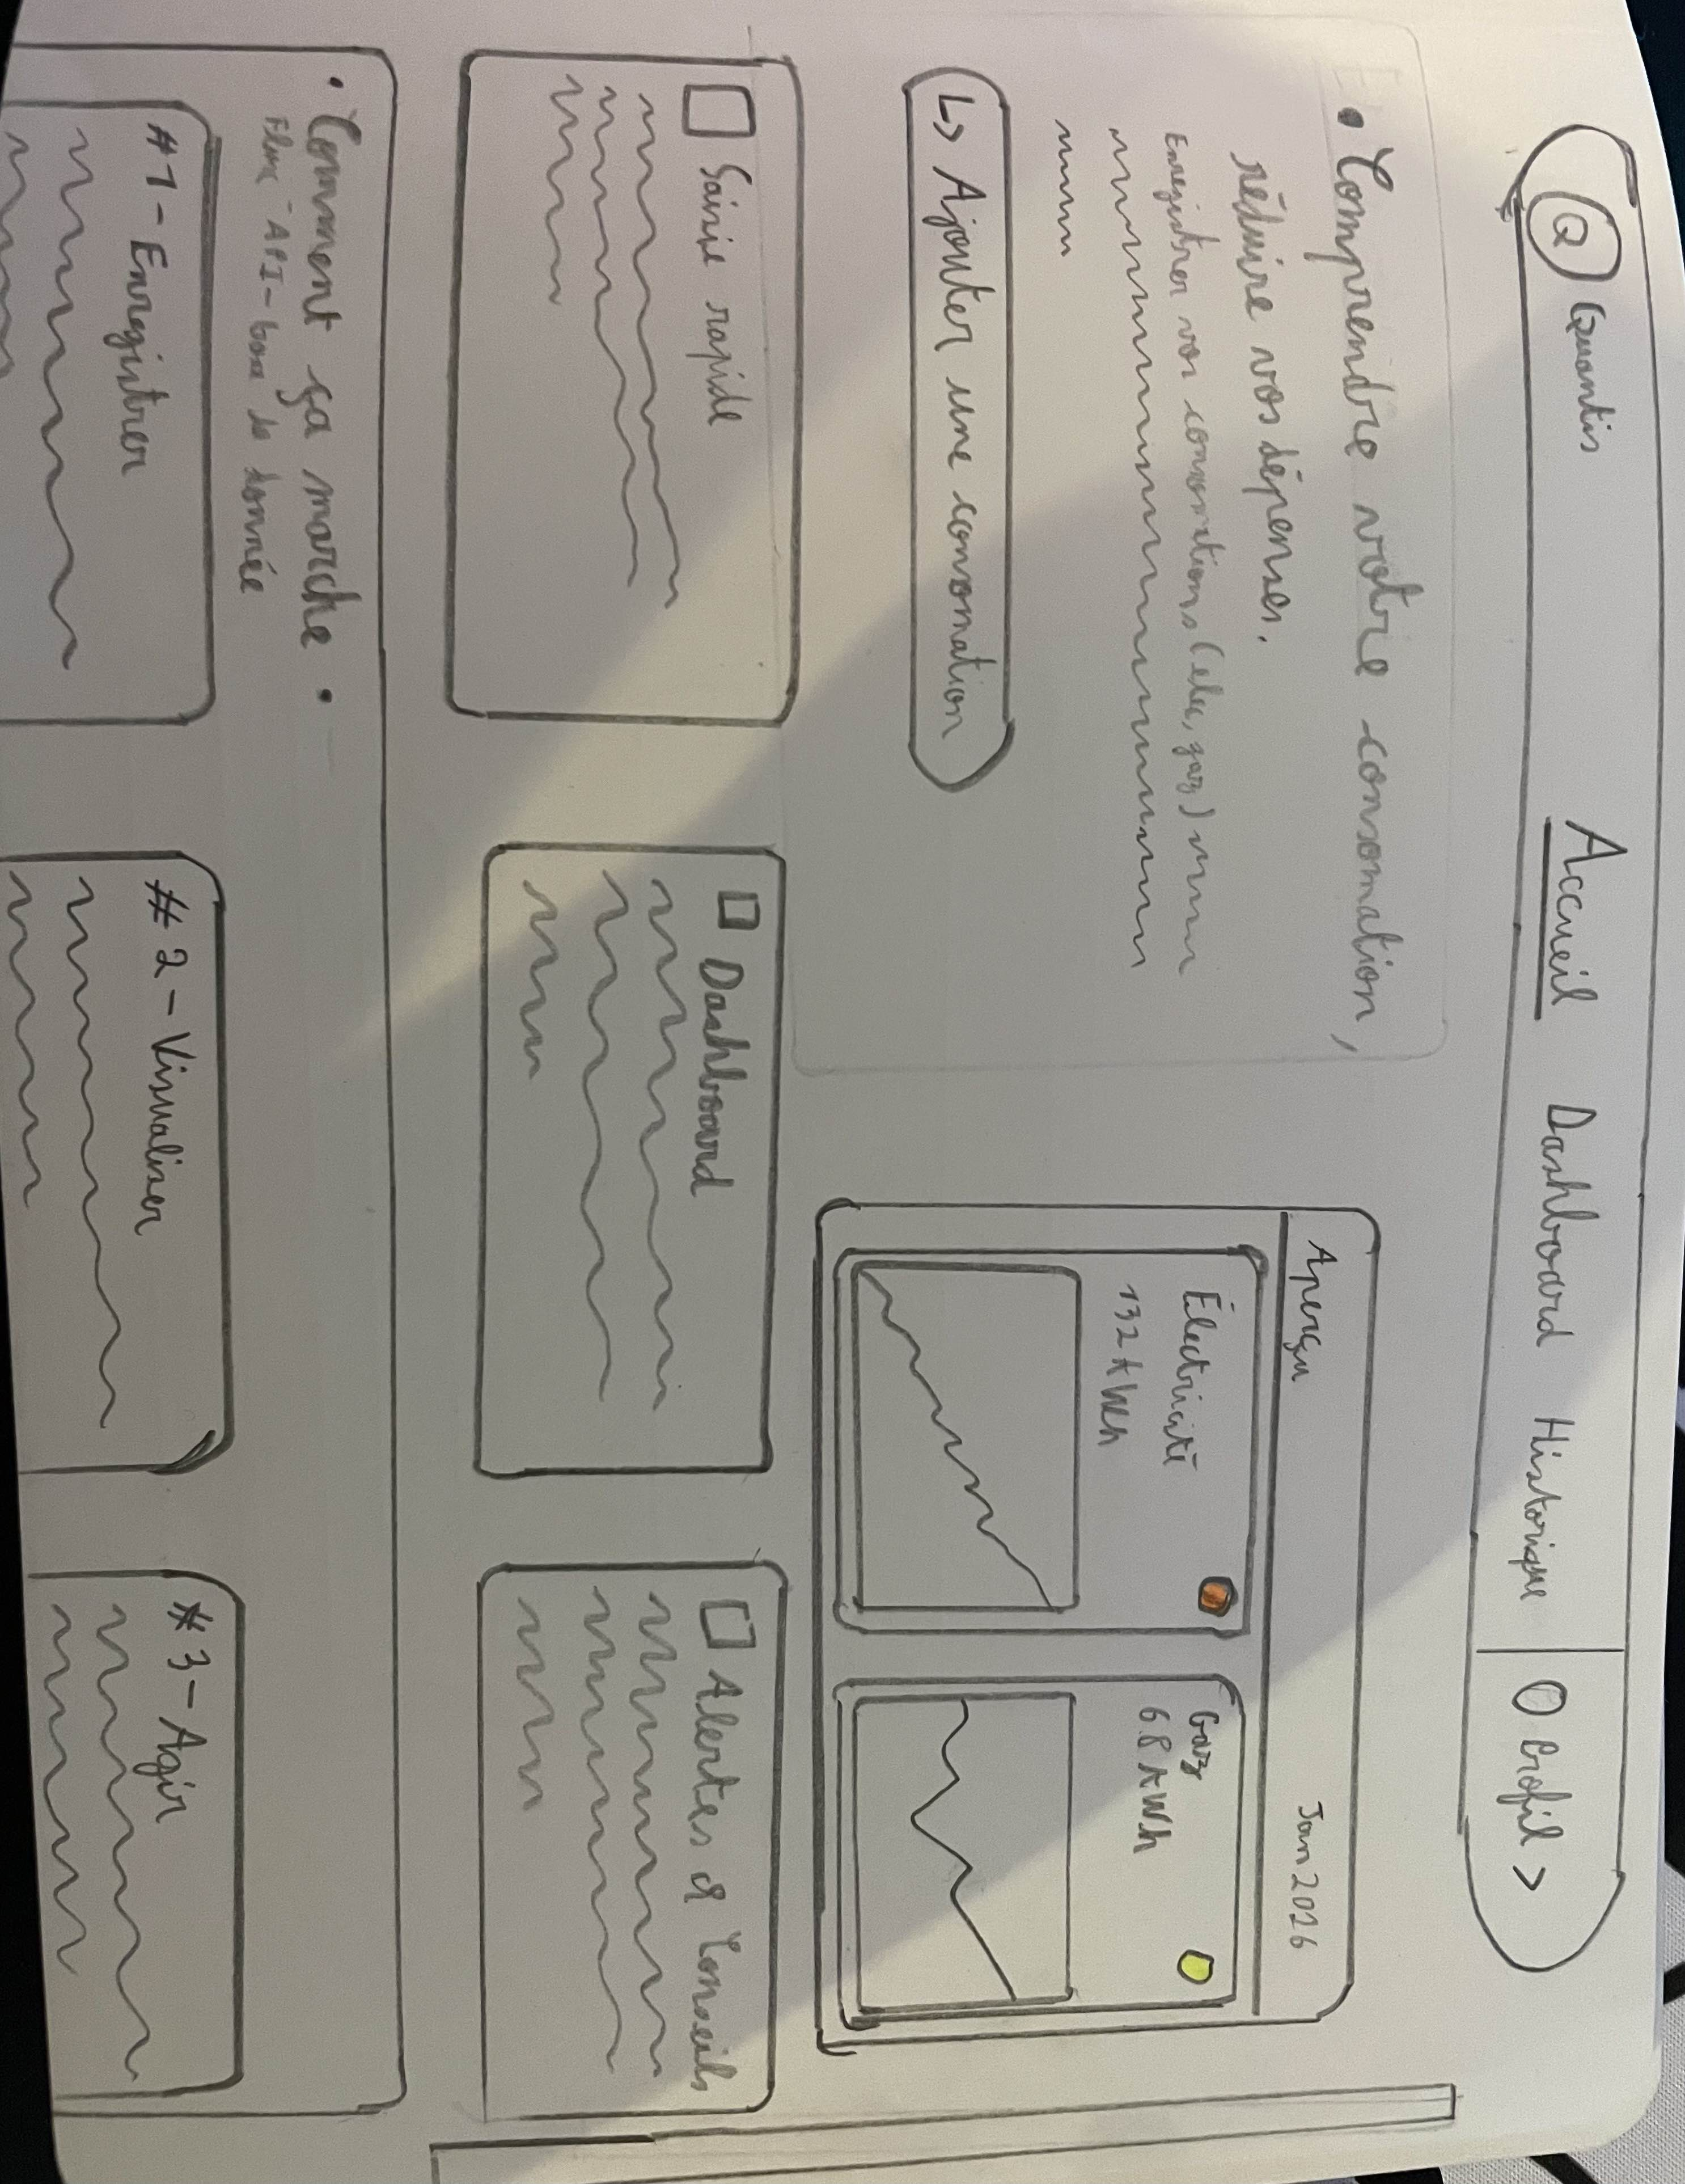 Q Quantis
Accueil Dashboard Historique O Profil >
• Comprendre votre consomation,
réduire vos dépenses.
Enregistrer vos consomations (elec, gaz)
↳ Ajouter une consomation
Aperçu Jan 2026
Électricité
132 kWh
Gaz
68 kWh
Saisie rapide
Dashboard
Alertes & Conseils
• Comment ça marche •
Flux - API - base de donnée
#1 - Enregistrer
#2 - Visualiser
#3 - Agir